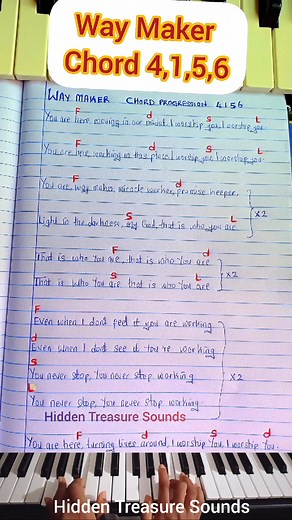 Way Maker
Chord 4,1,5,6
WAY MAKER CHORD PROGRESSION 4 1 5 6
F d S L
You are here, moving in our midst, I worship you, I worship you
F d S L
You are here, working in this place, I worship you, I worship you
F d
You are way maker, miracle worker, promise keeper,
S L
Light in the darkness, my God, that is who you are
x2
F d
That is who You are, that is who You are
S L
That is who You are that is who You are
x2
F
Even when I don't feel it you are working
d
Even when I don't see it You're working
S
You never stop, You never stop working
L
You never stop, You never stop working
x2
Hidden Treasure Sounds
F d S d
You are here, turning lives around, I worship You, I worship You.
Hidden Treasure Sounds